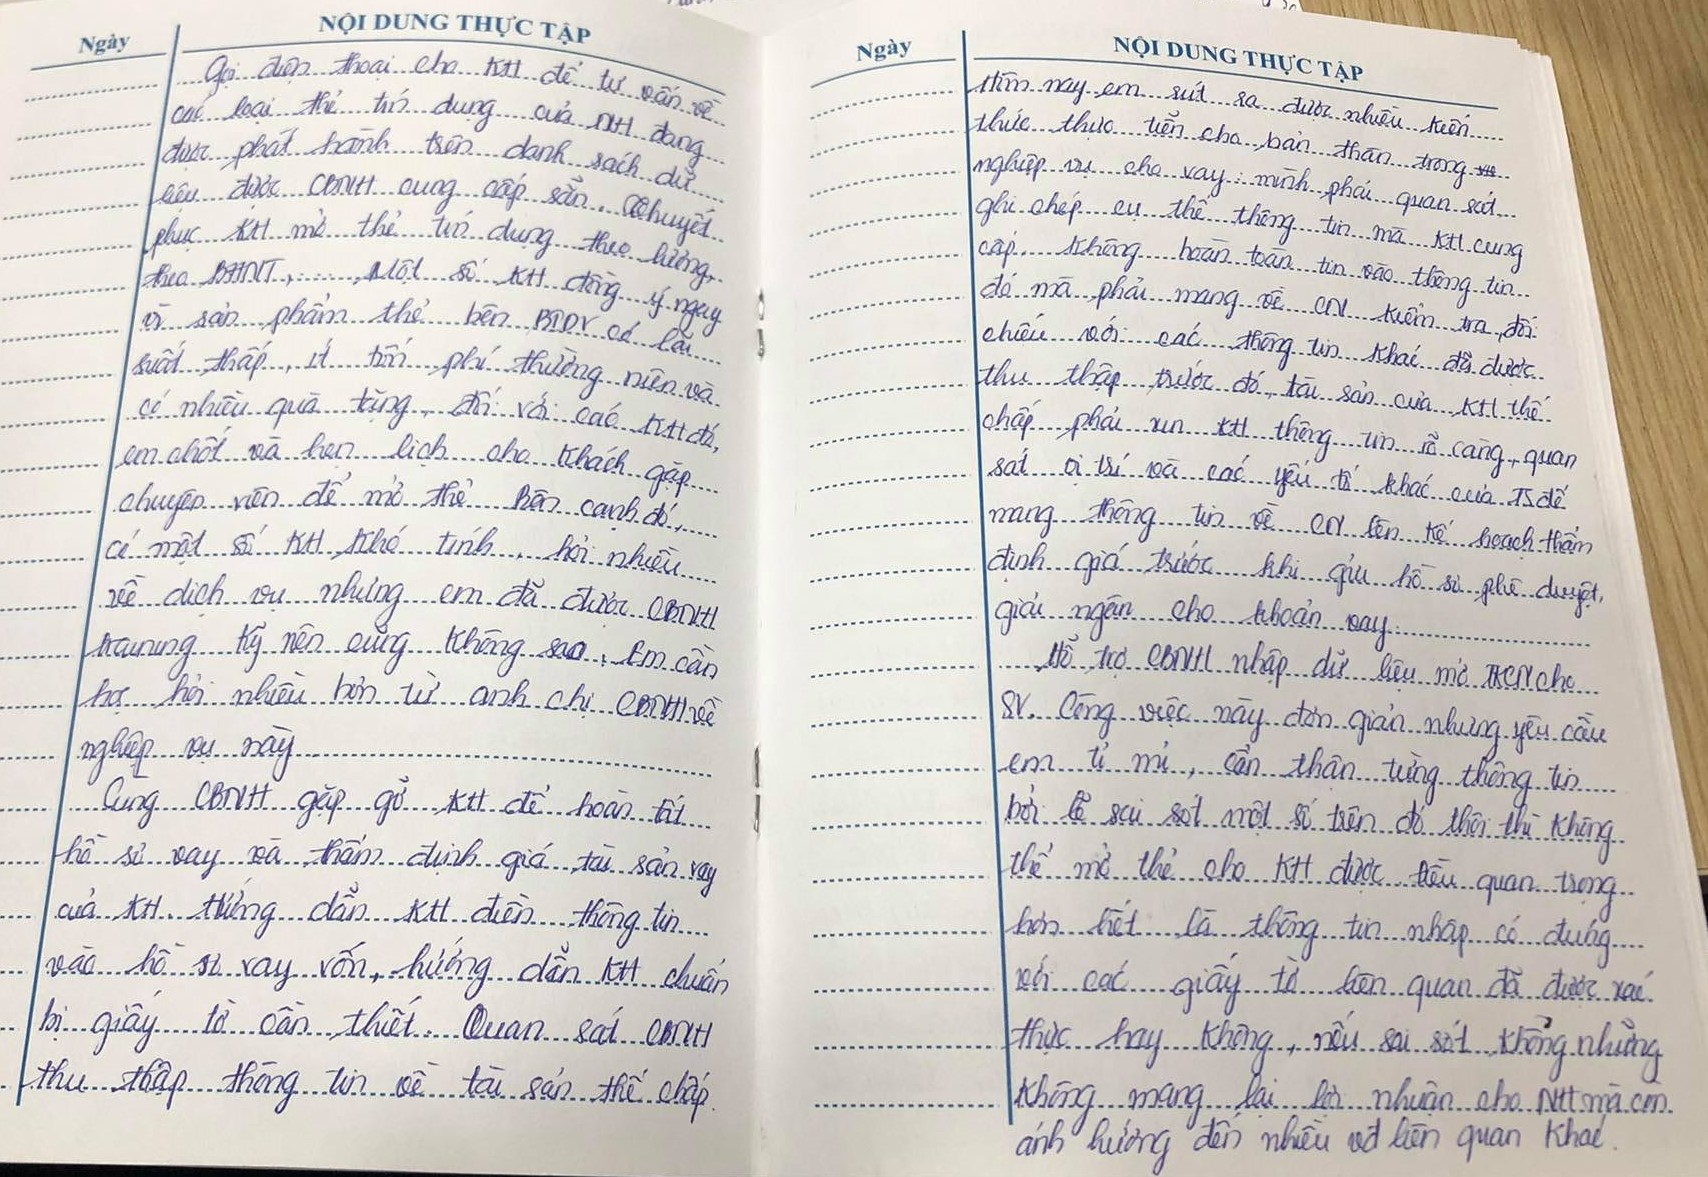 Ngày
NỘI DUNG THỰC TẬP
Gọi điện thoại cho KH để tư vấn về
các loại thẻ tín dụng của NH đang
được phát hành trên danh sách dữ
liệu được CBNH cung cấp sẵn. Thuyết
phục KH mở thẻ tín dụng theo lương,
theo BHNT,... Một số KH đồng ý ngay
vì sản phẩm thẻ bên BIDV có lãi
suất thấp, ít tốn phí thường niên và
có nhiều quà tặng, đối với các KH đó,
em chốt và hẹn lịch cho khách gặp
chuyên viên để mở thẻ. Bên cạnh đó,
có một số KH khó tính, hỏi nhiều
về dịch vụ nhưng em đã được CBNH
training kỹ nên cũng không sao. Em cần
học hỏi nhiều hơn từ anh chị CBNH về
nghiệp vụ này
Cùng CBNH gặp gỡ KH để hoàn tất
hồ sơ vay và thẩm định giá tài sản vay
của KH. Hướng dẫn KH điền thông tin
vào hồ sơ vay vốn, hướng dẫn KH chuẩn
bị giấy tờ cần thiết. Quan sát CBNH
thu thập thông tin về tài sản thế chấp.
Ngày
NỘI DUNG THỰC TẬP
Hôm nay em rút ra được nhiều kiến
thức thực tiễn cho bản thân trong
nghiệp vụ cho vay: mình phải quan sát
ghi chép cụ thể thông tin mà KH cung
cấp, không hoàn toàn tin vào thông tin
đó mà phải mang về CN kiểm tra, đối
chiếu với các thông tin khác đã được
thu thập trước đó, tài sản của KH thế
chấp phải xin KH thông tin rõ ràng, quan
sát vị trí và các yếu tố khác của TS để
mang thông tin về CN lên kế hoạch thẩm
định giá trước khi gửi hồ sơ phê duyệt,
giải ngân cho khoản vay.
Hỗ trợ CBNH nhập dữ liệu mở TKCN cho
SV. Công việc này đơn giản nhưng yêu cầu
em tỉ mỉ, cẩn thận từng thông tin
bởi lẽ sai sót một số trên đó thôi thì không
thể mở thẻ cho KH được. Điều quan trọng
hơn hết là thông tin nhập có đúng
với các giấy tờ liên quan đã được xác
thực hay không, nếu sai sót không những
không mang lại lợi nhuận cho NH mà còn
ảnh hưởng đến nhiều vđ liên quan khác.